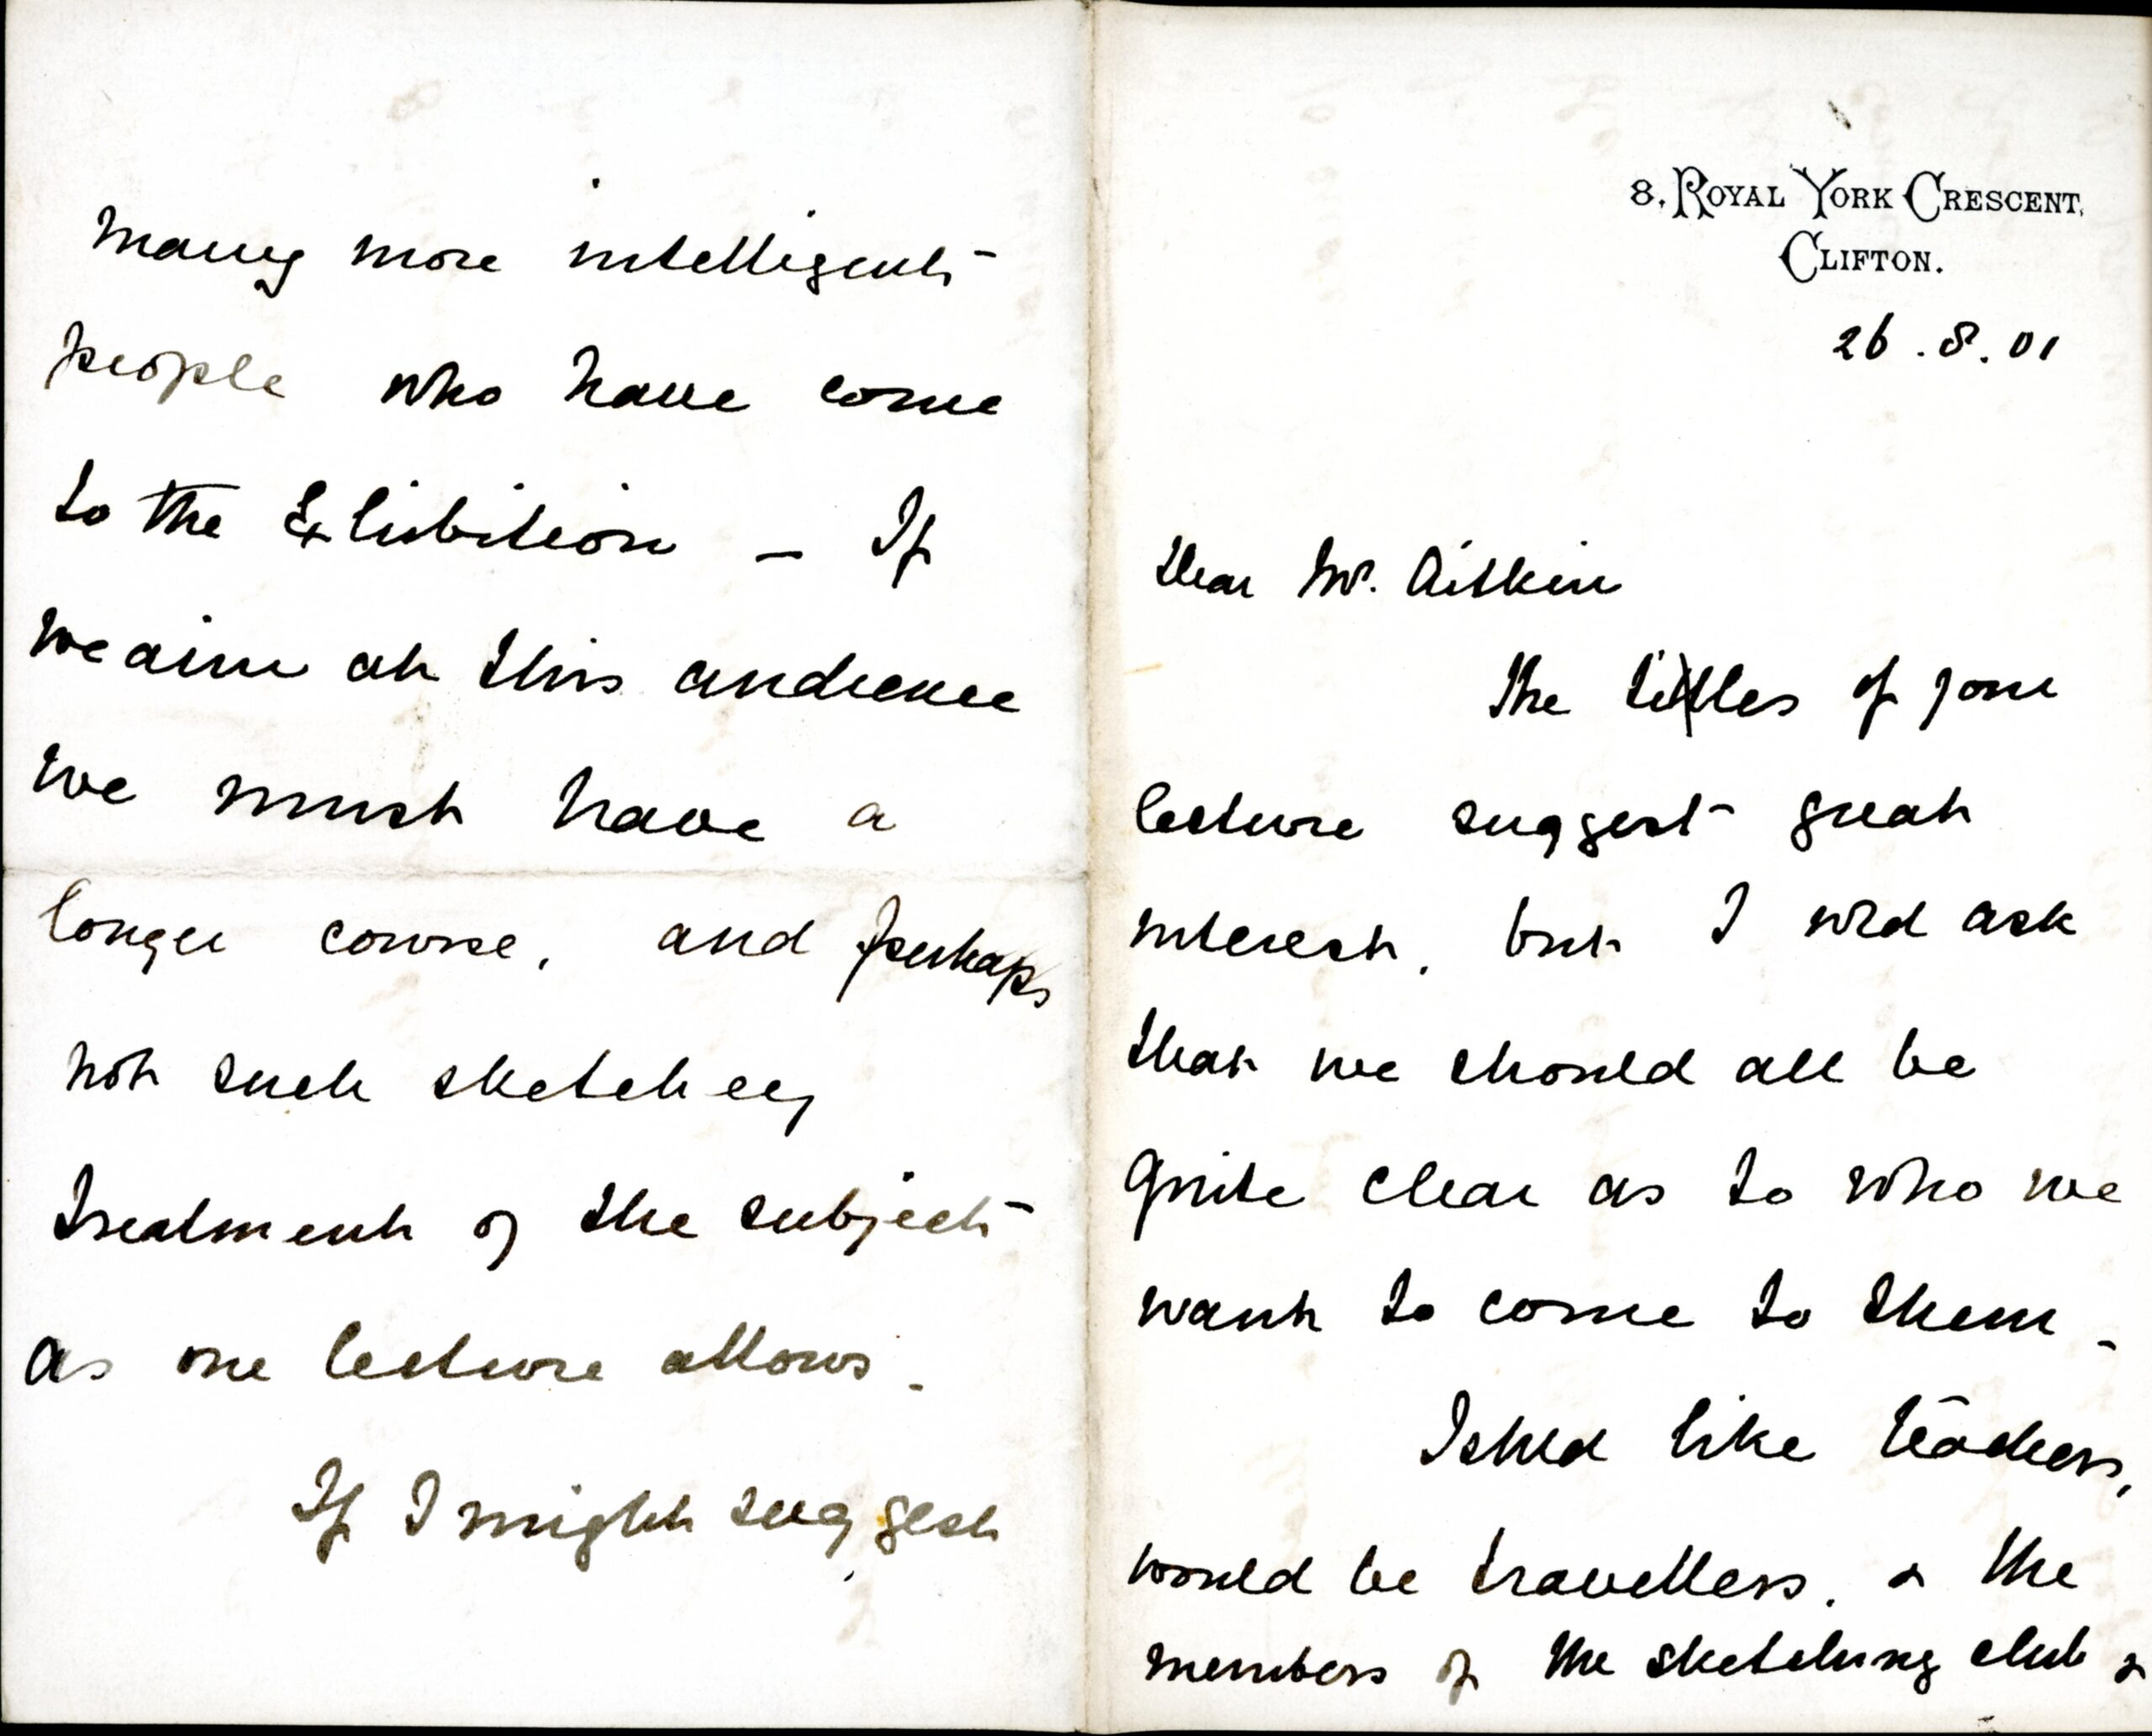 8, ROYAL YORK CRESCENT,
CLIFTON.
26.8.01
Dear Mr. Aitken
The titles of your
lecture suggest great
interest, but I wld ask
that we should all be
quite clear as to who we
want to come to them -
I shld like teachers,
would be travellers, & the
members of the sketching club &
many more intelligent
people who have come
to the Exhibition - If
we aim at this audience
we must have a
longer course, and perhaps
not such sketchey
treatment of the subject
as one lecture allows.
If I might suggest